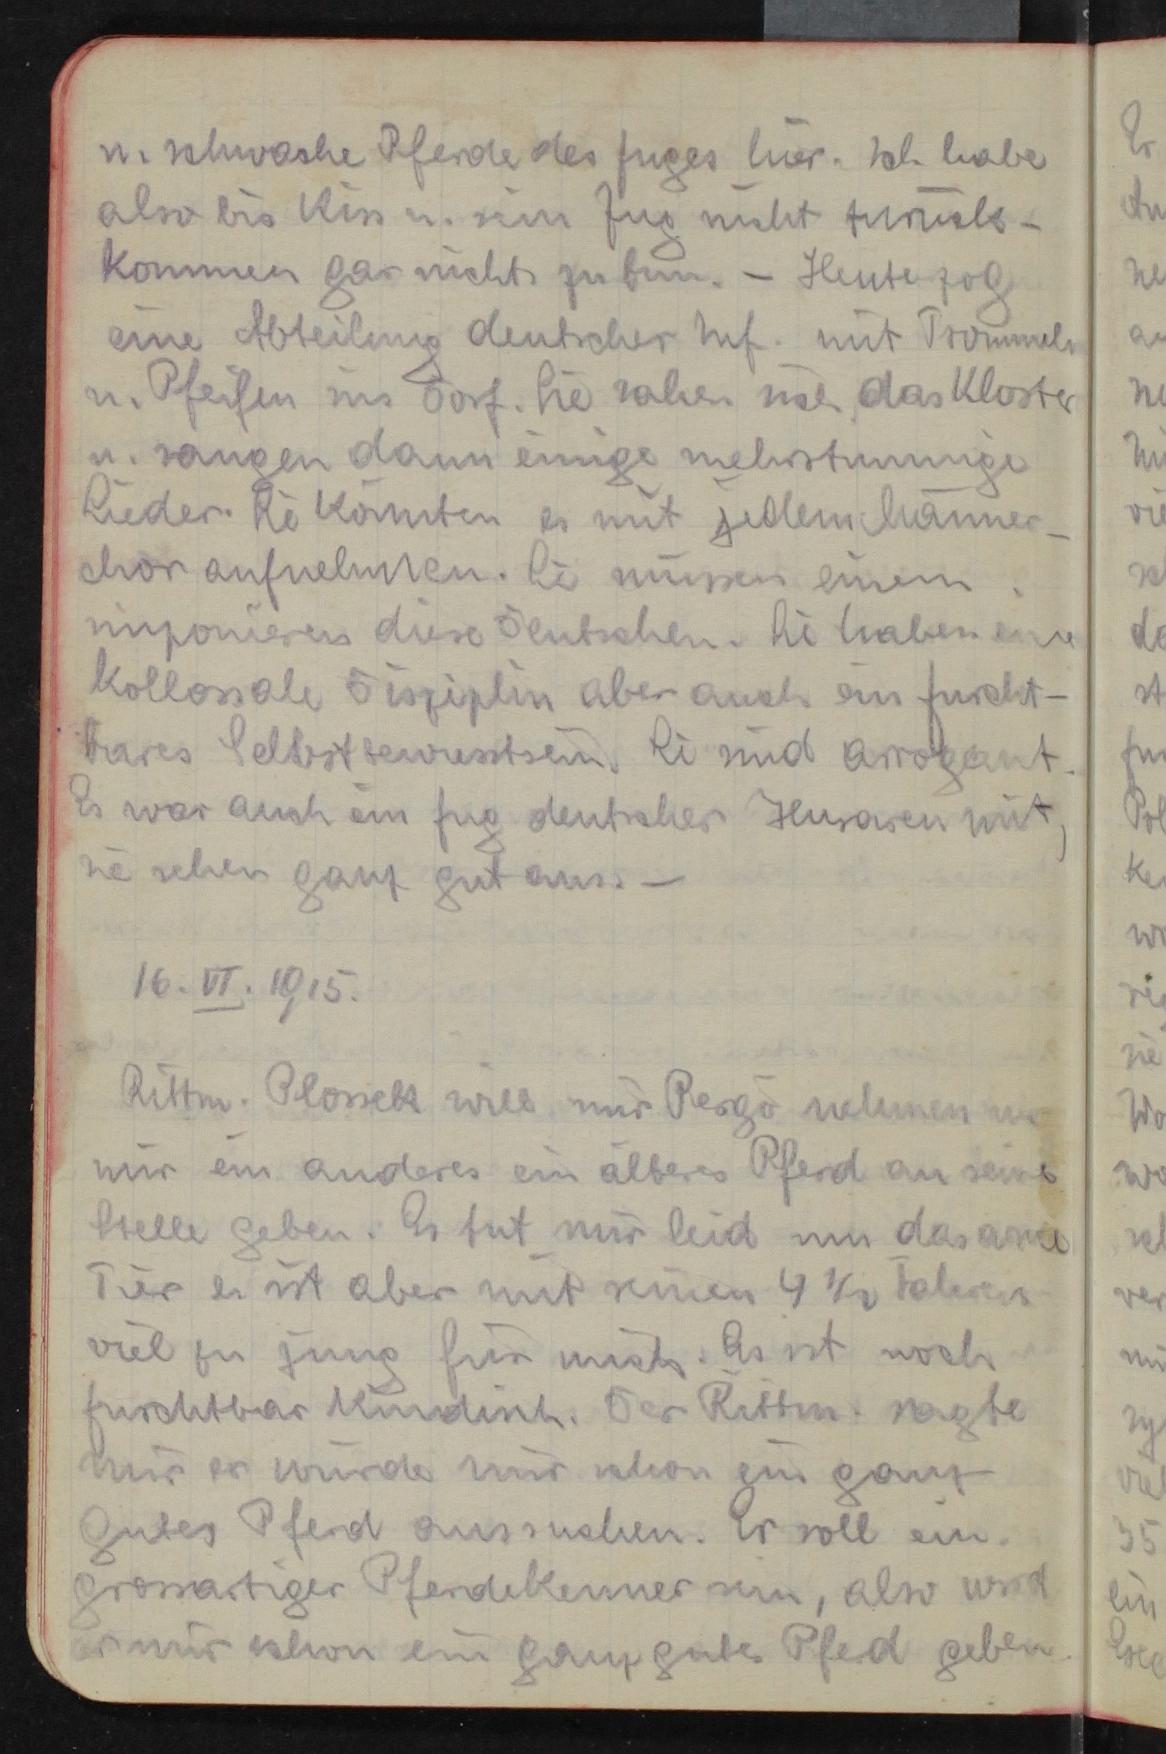 u. schwache Pferde des Zuges hier. Ich habe
also bis Kiss u. sein Zug nicht zurück-
kommen gar nichts zu tun. – Heute zog
eine Abteilung deutscher Inf. mit Trommeln
u. Pfeifen ins Dorf. Sie sahen sich das Kloster
u. sangen dann einige mehrstimmige
Lieder. Sie könnten es mit jedem Männer-
chor aufnehmen. Sie müssen einem
imponieren diese Deutschen. Sie haben eine
Kollossale Disziplin aber auch ein furcht-
bares Selbstbewusstsein. Sie sind arrogant.
Es war auch ein Zug deutscher Husaren mit,
sie sehen ganz gut aus. –
16. VI. 1915.
Rittm. Plossek will mir Pergö nehmen u.
mir ein anderes ein älteres Pferd an seine
Stelle geben. Es tut mir leid um das arme
Tier es ist aber mit seinen 4 1/2 Jahren
viel zu jung für mich. Es ist noch
furchtbar kindisch. Der Rittm. sagte
mir er würde mir schon ein ganz
gutes Pferd aussuchen. Er soll ein
grossartiger Pferdekenner sein, also wird
er mir schon ein ganz gutes Pferd geben.